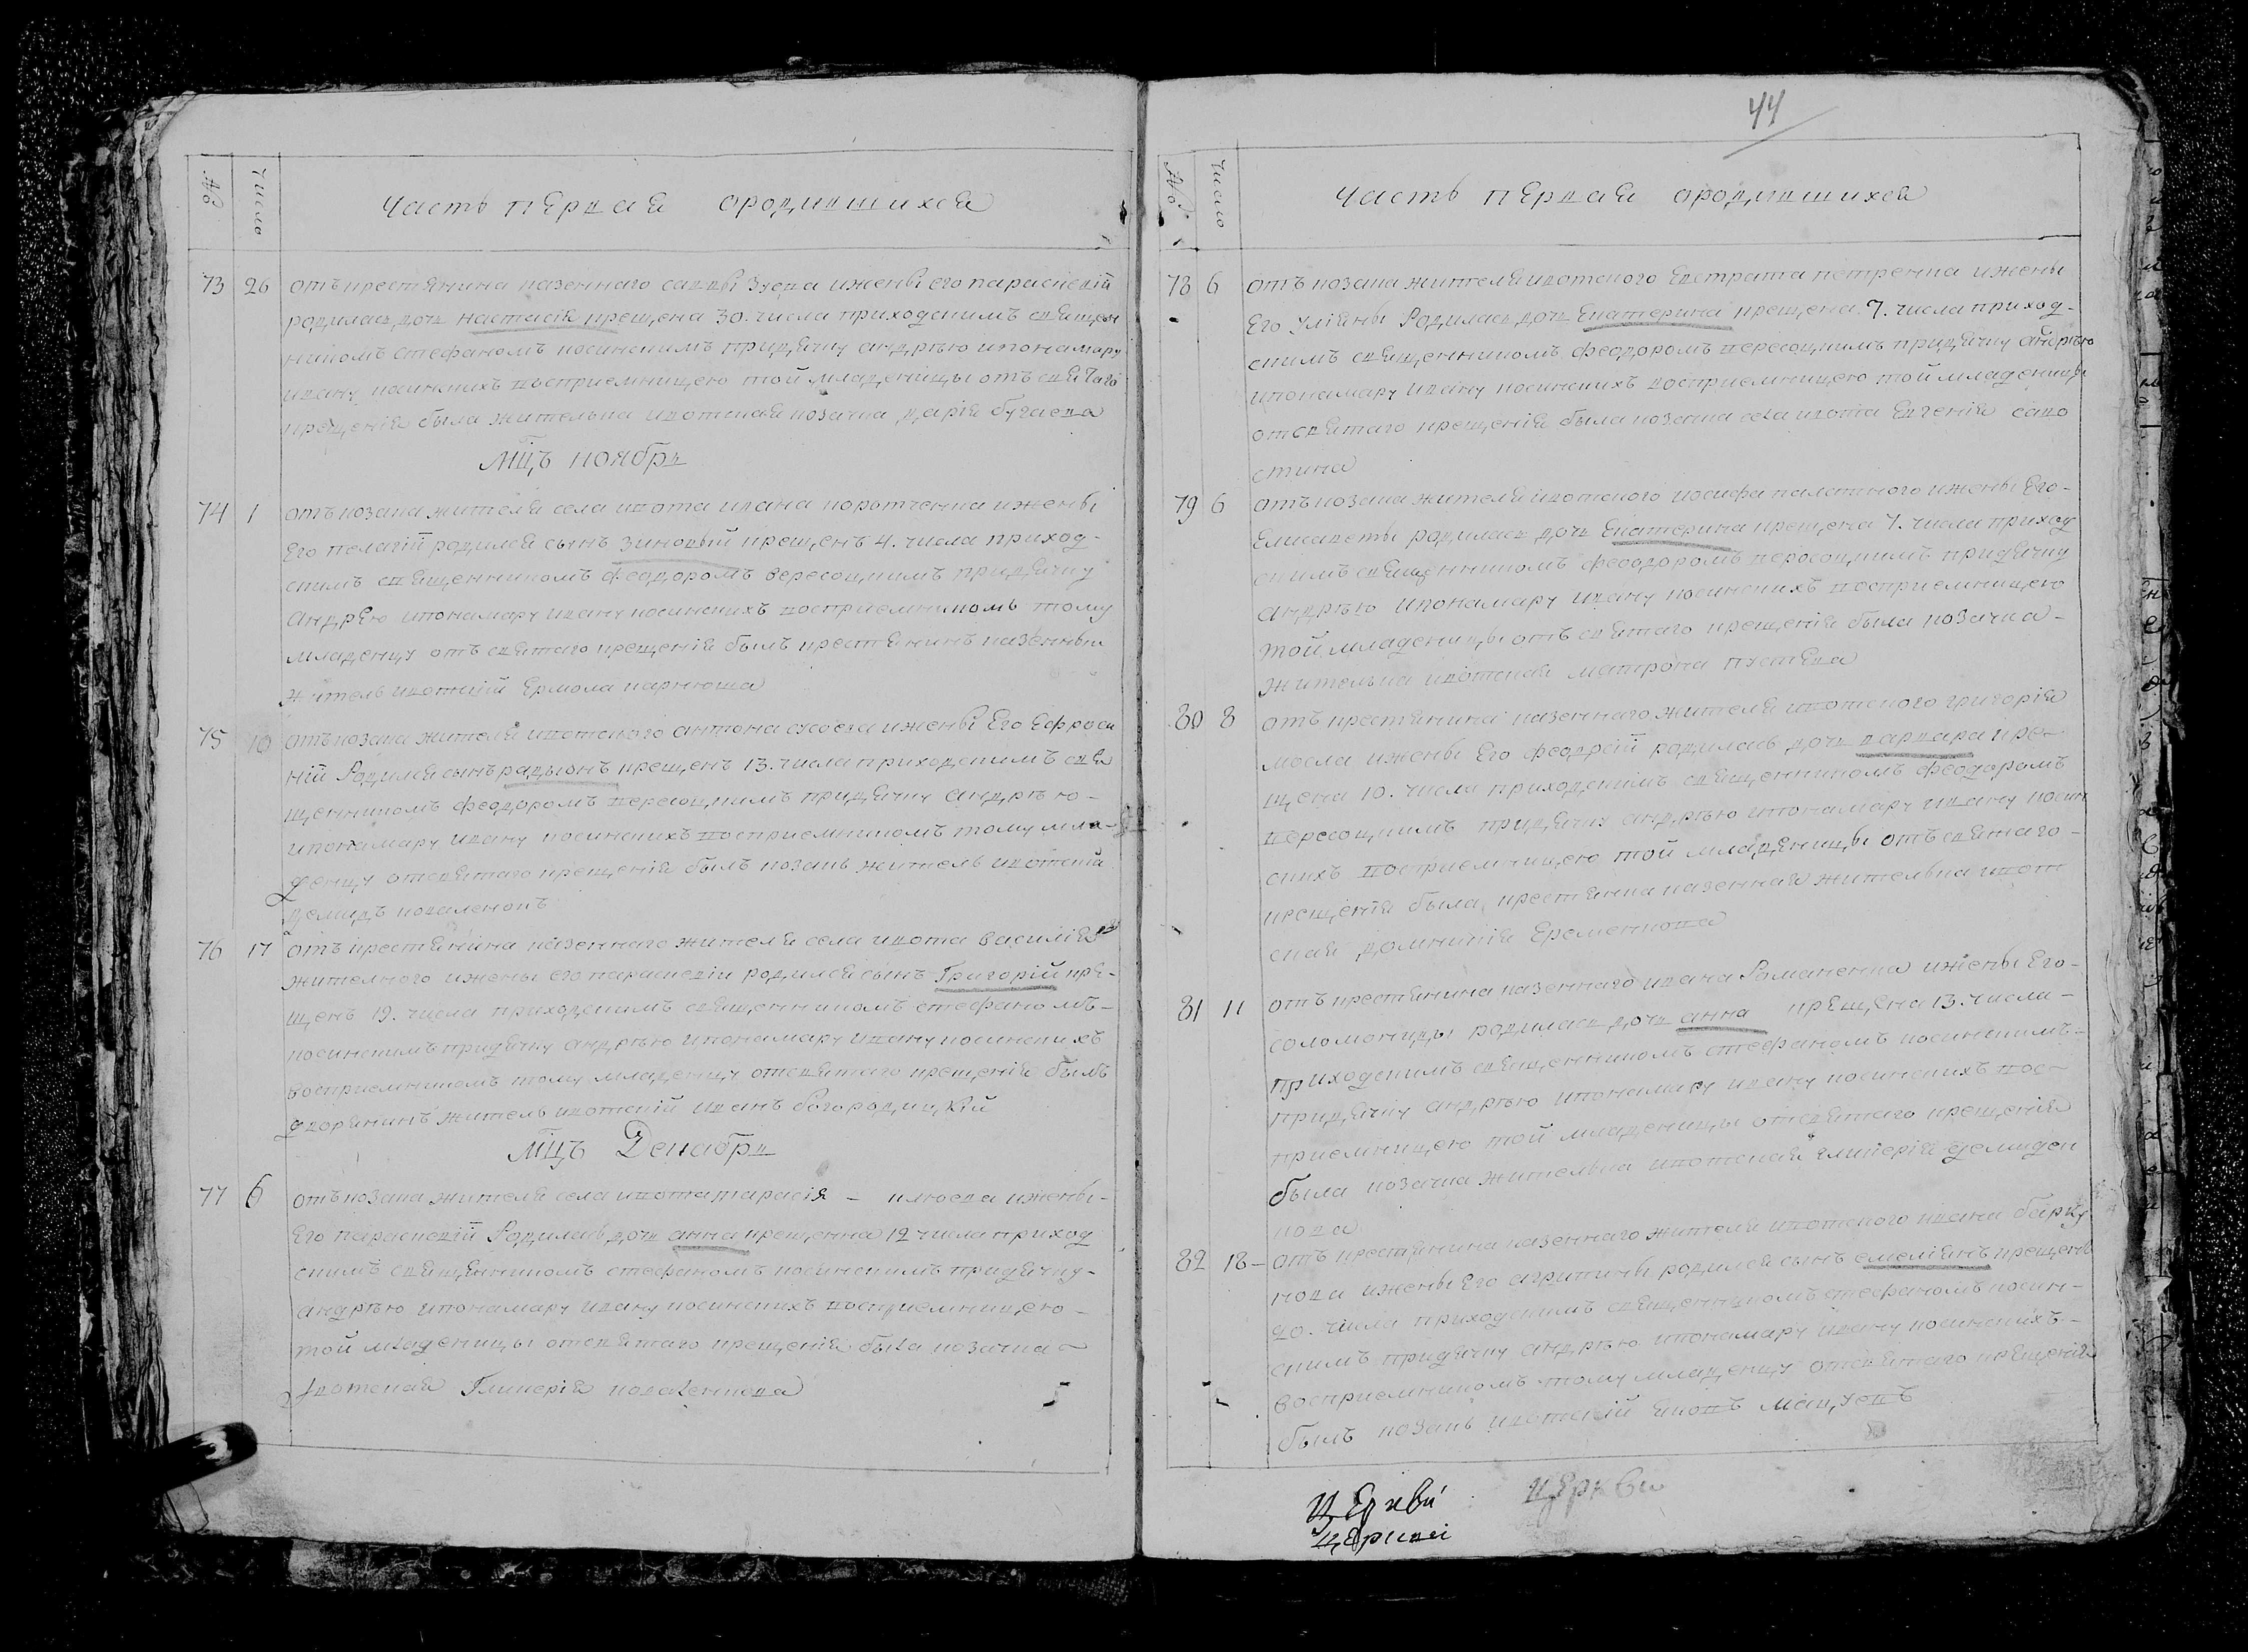 № Число Часть первая ородившихся
73 26 отъ крестянина казеннаго саввы Зуева ижены его параскевій
родилась дочь настасія крещена 30. числа приходскимъ священ
никомъ стефаномъ косинскимъ придячку андрѣю ипонамару
ивану косинскихъ восприемницею той младеницы отъ святаго
крещенія была жителька ивотская козачка дарія бугаева
Мцъ ноябрь
74 1 отъ козака жителя села ивота ивана коротченка ижены
Его пелагій родился сынъ зиновій крещенъ 4. числа приход-
скимъ священникомъ феодоромъ вересоцкимъ придячку
андрею ипонамару ивану косинскихъ восприемникомъ тому
младенцу отъ святаго крещенія былъ крестянинъ казенный
житель ивотскій Ермола карнюша
75 10 отъ козака жителя ивотского антона сусоева ижены Его Ефроси
ній Родился сынъ радыонъ крещенъ 13. числа приходскимъ свя
щенникомъ феодоромъ вересоцкимъ придячку андрѣю-
ипонамару ивану косинскихъ восприемникомъ тому мла-
денцу отсвятаго крещенія былъ козакъ житель ивотскій
демидъ коваленокъ
76 17 отъ крестянина казеннаго жителя села ивота василія
жителного ижены его параскевіи родился сынъ Григорій кре-
щенъ 19. числа приходскимъ священникомъ стефаномъ-
косинскимъ придячку андрѣю ипонамару ивану косинскихъ
восприемникомъ тому младенцу отсвятаго крещенія былъ
дворянинъ житель ивотскій иванъ богородицкій
мцъ Декабрь
77 6 отъ козака жителя села ивота тарасія - клюева ижены-
Его параскевій Родилась дочь анна крещенна 12 числа приход
скимъ священникомъ стефаномъ косинскимъ придячку-
андрѣю ипонамару ивану косинскихъ восприемницею-
той младеницы отсвятаго крещенія была козачка-
ивотская Гликерія коваленкова
44
№ Число Часть первая ородившихся
78 6 отъ козака жителя ивотского Евстрата петренка ижены
Его уліяны Родилась дочь Екатерина крещена 7. числа приход-
скимъ священникомъ феодоромъ вересоцкимъ придячку андрѣю
ипонамару ивану косинскихъ восприемницею той младеницы
отсвятаго крещенія была козачка села ивота Евгенія саво
стина
79 6 отъ козака жителя ивотского иосифа палатного ижены Его-
Елисаветы родилась дочь Екатерина крещена 7. числа приход
скимъ священникомъ феодоромъ вересоцкимъ придячку
андрѣю ипонамару ивану косинскихъ восприемницею
той младеницы отъ святаго крещенія была козачка-
жителька ивотская матрона пустева
80 8 отъ крестянина казеннаго жителя ивотского григорія
мосла ижены Его феодосій родилась дочь варвара кре-
щена 10. числа приходскимъ священникомъ феодоромъ
вересоцкимъ придячку андрѣю ипонамару ивану косин
скихъ восприемницею той младеницы отъ святаго-
крещенія была крестянка казенная жителька ивот
ская домникія Еременкова
81 11 отъ крестянина казеннаго ивана Романенка ижены Его-
соломониды родилась дочь анна крещена 13. числа-
приходскимъ священникомъ стефаномъ косинскимъ-
придячку андрѣю ипонамару ивану косинскихъ вос-
приемницею той младеницы отсвятаго крещенія
была козачка жителька ивотская гликерія демиден
кова
82 18- отъ крестянина казеннаго жителя ивотского ивана барку
нови ижены Его агрипины родился сынъ емеліянъ крещенъ
20. числа приходскимъ священникомъ стефаномъ косин-
скимъ придячку андрѣю ипонамару ивану косинскихъ-
восприемникомъ тому младенцу отсвятаго крещенія
былъ козакъ ивотскій яковъ мацуевъ
церкви церкви
церкві